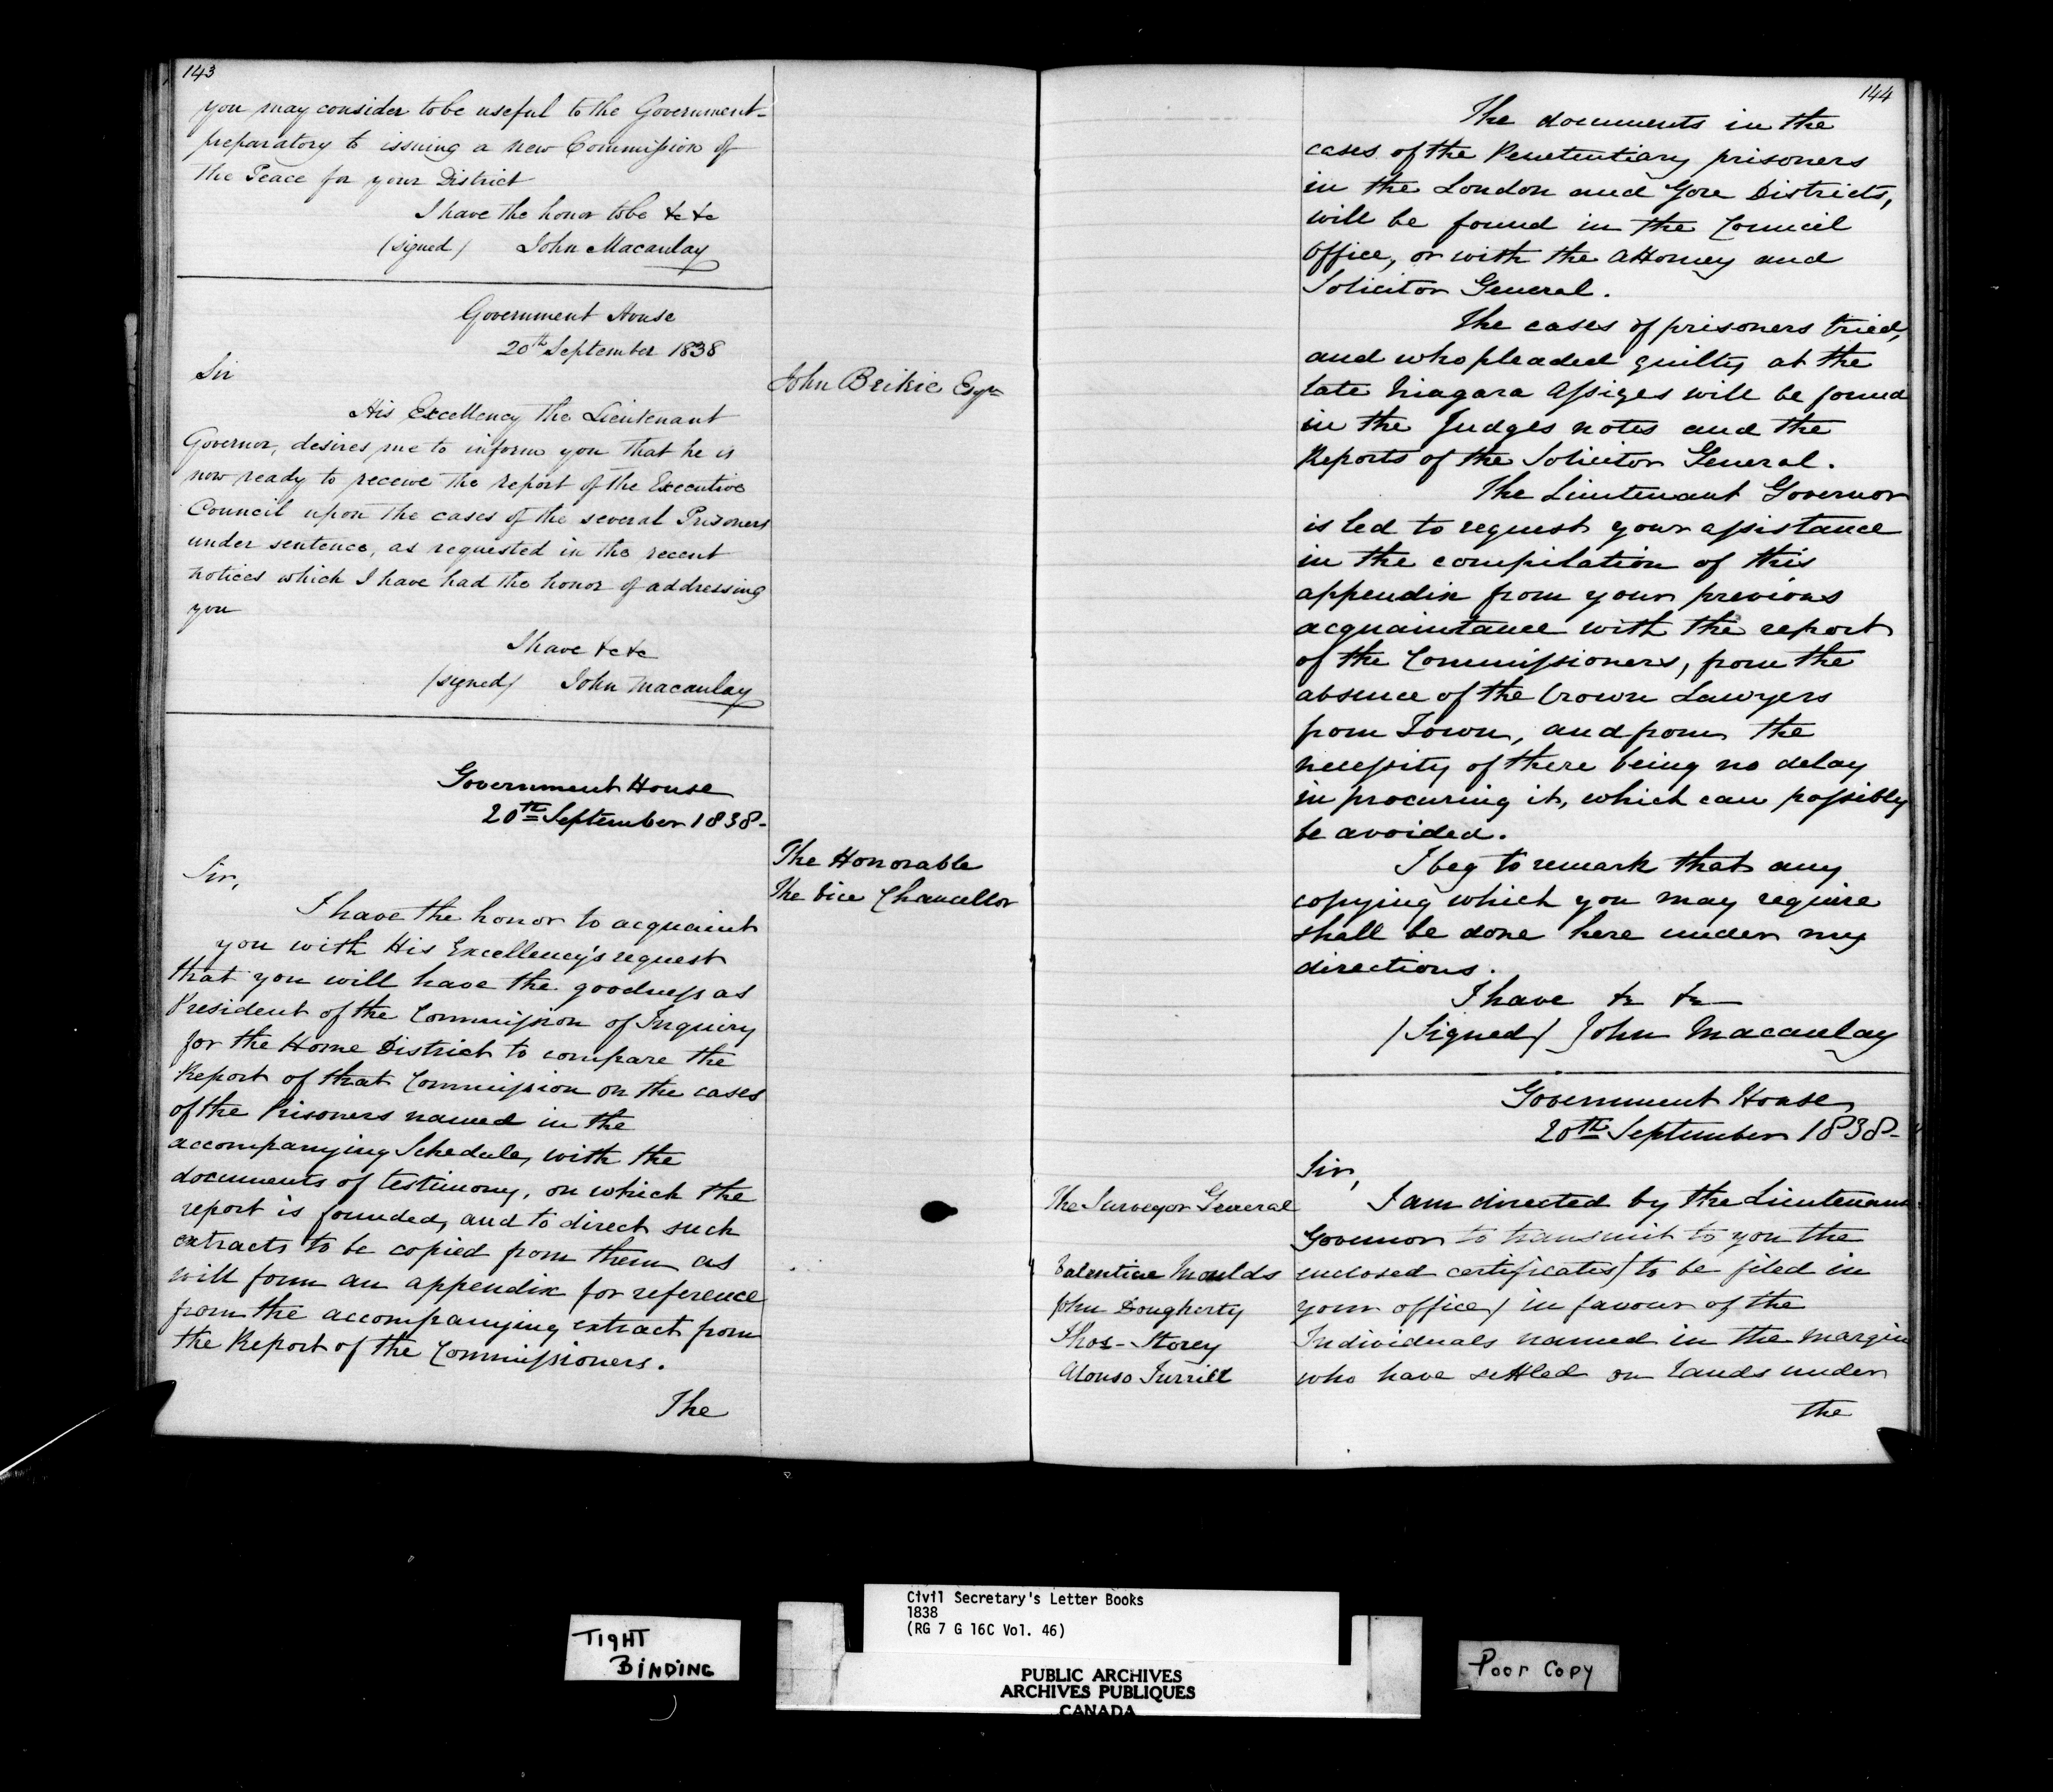 143
you may consider to be useful to the Government-
preparatory to issuing a new Commission of
the Peace for your District
I have the honor to be &c &c
(signed) John Macaulay
Government House
20th September 1838
Sir
John Brikie Esqr
His Excellency the Lieutenant
Governor, desires me to inform you that he is
now ready to receive the report of the Executive
Council upon the cases of the several Prisoners
under sentence, as requested in the recent
notices which I have had the honor of addressing
you
I have &c &c
(signed) John Macaulay
Government House
20th September 1838-
The Honorable
The Vice Chancellor
Sir,
I have the honor to acquaint
you with His Excellency's request
that you will have the goodness as
President of the Commission of Inquiry
for the Home District to compare the
Report of that Commission on the cases
of the Prisoners named in the
accompanying Schedule, with the
documents of testimony, on which the
report is founded, and to direct such
extracts to be copied from them as
will form an appendix for reference
from the accompanying extract from
the Report of the Commissioners.
The
144
The documents in the
cases of the Penetentiary prisoners
in the London and Gore Districts,
will be found in the Council
Office, or with the Attorney and
Solicitor General.
The cases of prisoners tried,
and who pleaded guilty at the
late Niagara Assizes will be found
in the Judges notes and the
Reports of the Solicitor General.
The Lieutenant Governor
is led to request your assistance
in the compilation of this
appendix from your previous
acquaintance with the report
of the Commissioners, from the
absence of the Crown Lawyers
from Town, and from the
necessity of there being no delay
in procuring it, which can possibly
be avoided.
I beg to remark that any
copying which you may require
shall be done here under my
directions.
I have &c &c
(Signed) John Macaulay
Government House
20th September 1838-
Sir,
The Surveyor General
I am directed by the Lieutenant
Governor to transmit to you the
enclosed certificates (to be filed in
your office) in favour of the
Individuals named in the margin
who have settled on lands under
the
Valentine Moulds
John Dougherty
Thos- Storey
Alonso Turrill
TIGHT
BINDING
Civil Secretary's Letter Books
1838
(RG 7 G 16C Vol. 46)
PUBLIC ARCHIVES
ARCHIVES PUBLIQUES
CANADA
Poor Copy